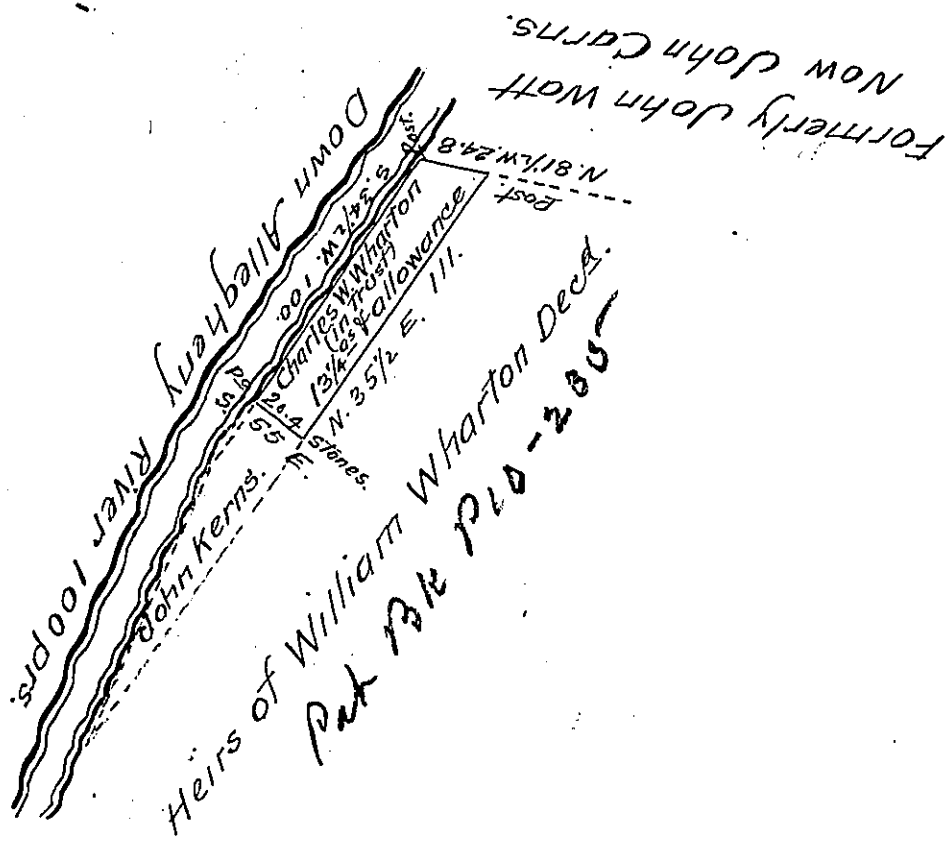 Formerly John Watt
Now John Carns.
Down Allegheny River 100 prs.
Post.
N. 81½ W. 24.8
Post
S. 34½ W. 100.
Charles W. Wharton
(in Trust)
13¼ as & allowance
N. 35½ E. 111.
20.4
S. 55 E.
Stones.
John Kerns.
Heirs of William Wharton Decd.
Pat Bk P10-235